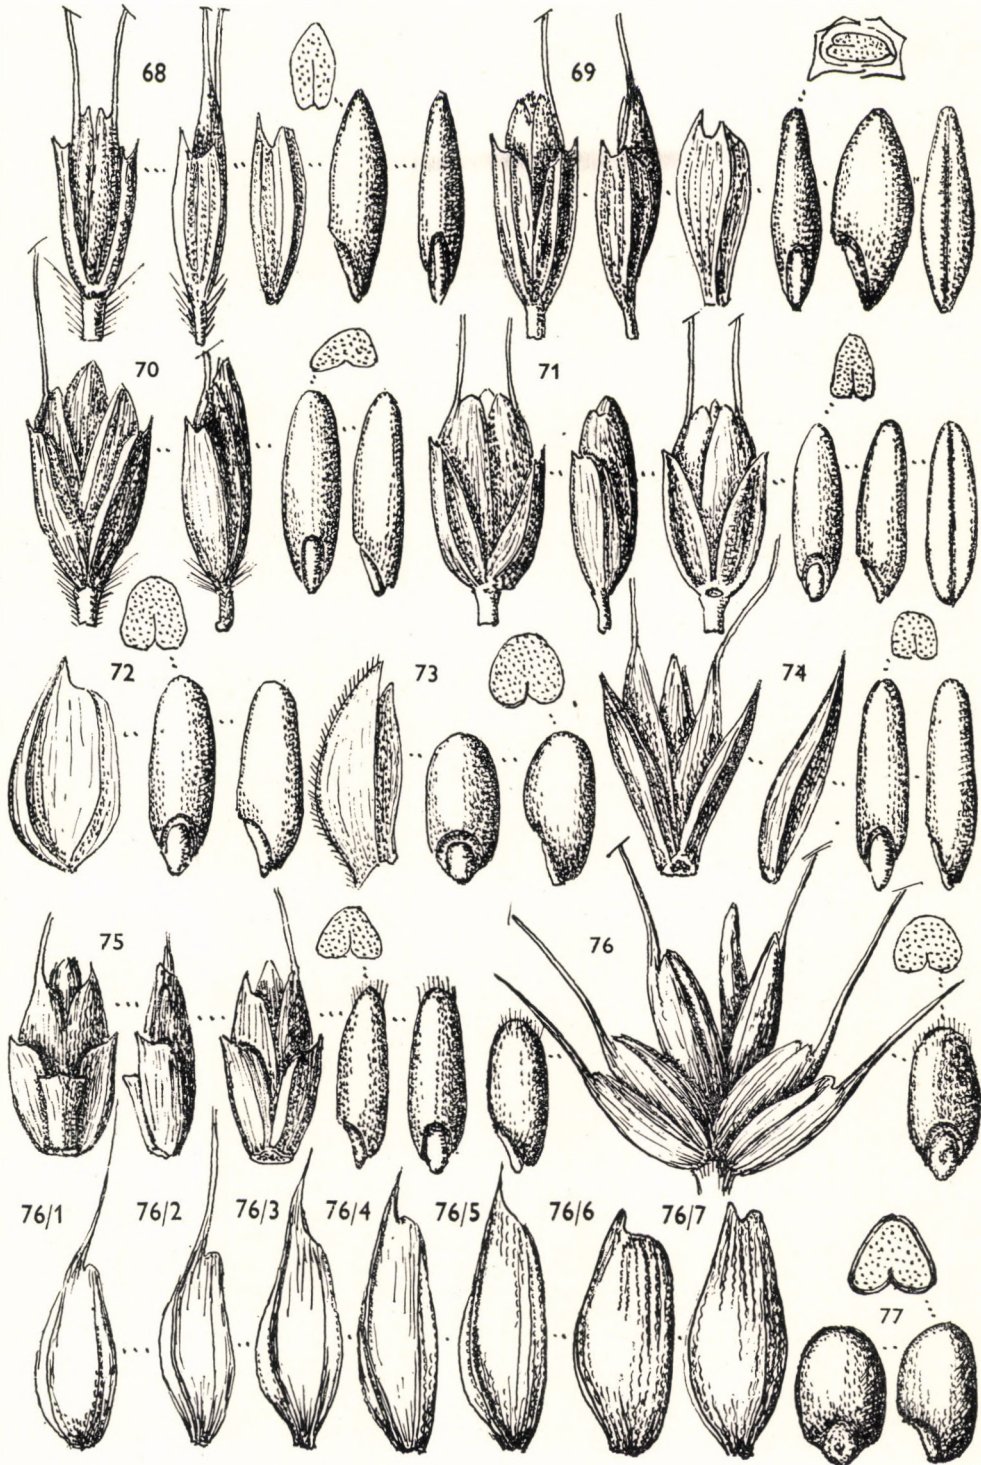 68
69
70
71
72
73
74
75
76
76/1 76/2 76/3 76/4 76/5 76/6 76/7
77